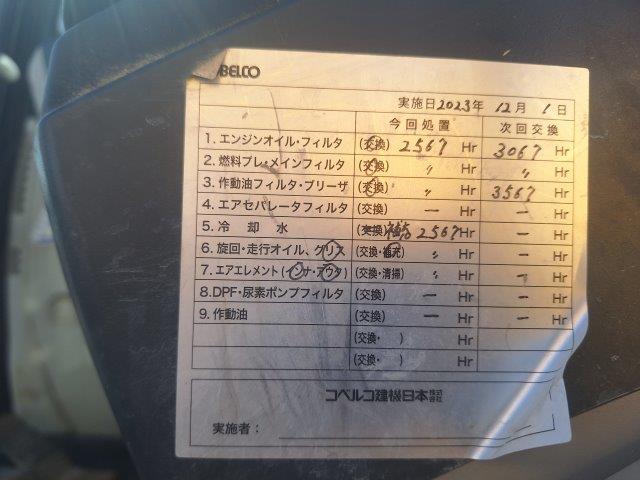 BELCO
実施日2023年 12月 1日
今回処置 次回交換
1. エンジンオイル・フィルタ (交換) 2567 Hr 3067 Hr
2. 燃料プレ・メインフィルタ (交換) 〃 Hr 〃 Hr
3. 作動油フィルタ・ブリーザ (交換) 〃 Hr 3567 Hr
4. エアセパレータフィルタ (交換) ー Hr ー Hr
5. 冷却水 (交換) 補充 2567 Hr ー Hr
6. 旋回・走行オイル、グリス (交換・補充) 〃 Hr ー Hr
7. エアエレメント (インナ・アウタ) (交換・清掃) 〃 Hr ー Hr
8. DPF・尿素ポンプフィルタ (交換) ー Hr ー Hr
9. 作動油 (交換) ー Hr ー Hr
(交換・ ) Hr Hr
(交換・ ) Hr Hr
コベルコ建機日本株式会社
実施者：